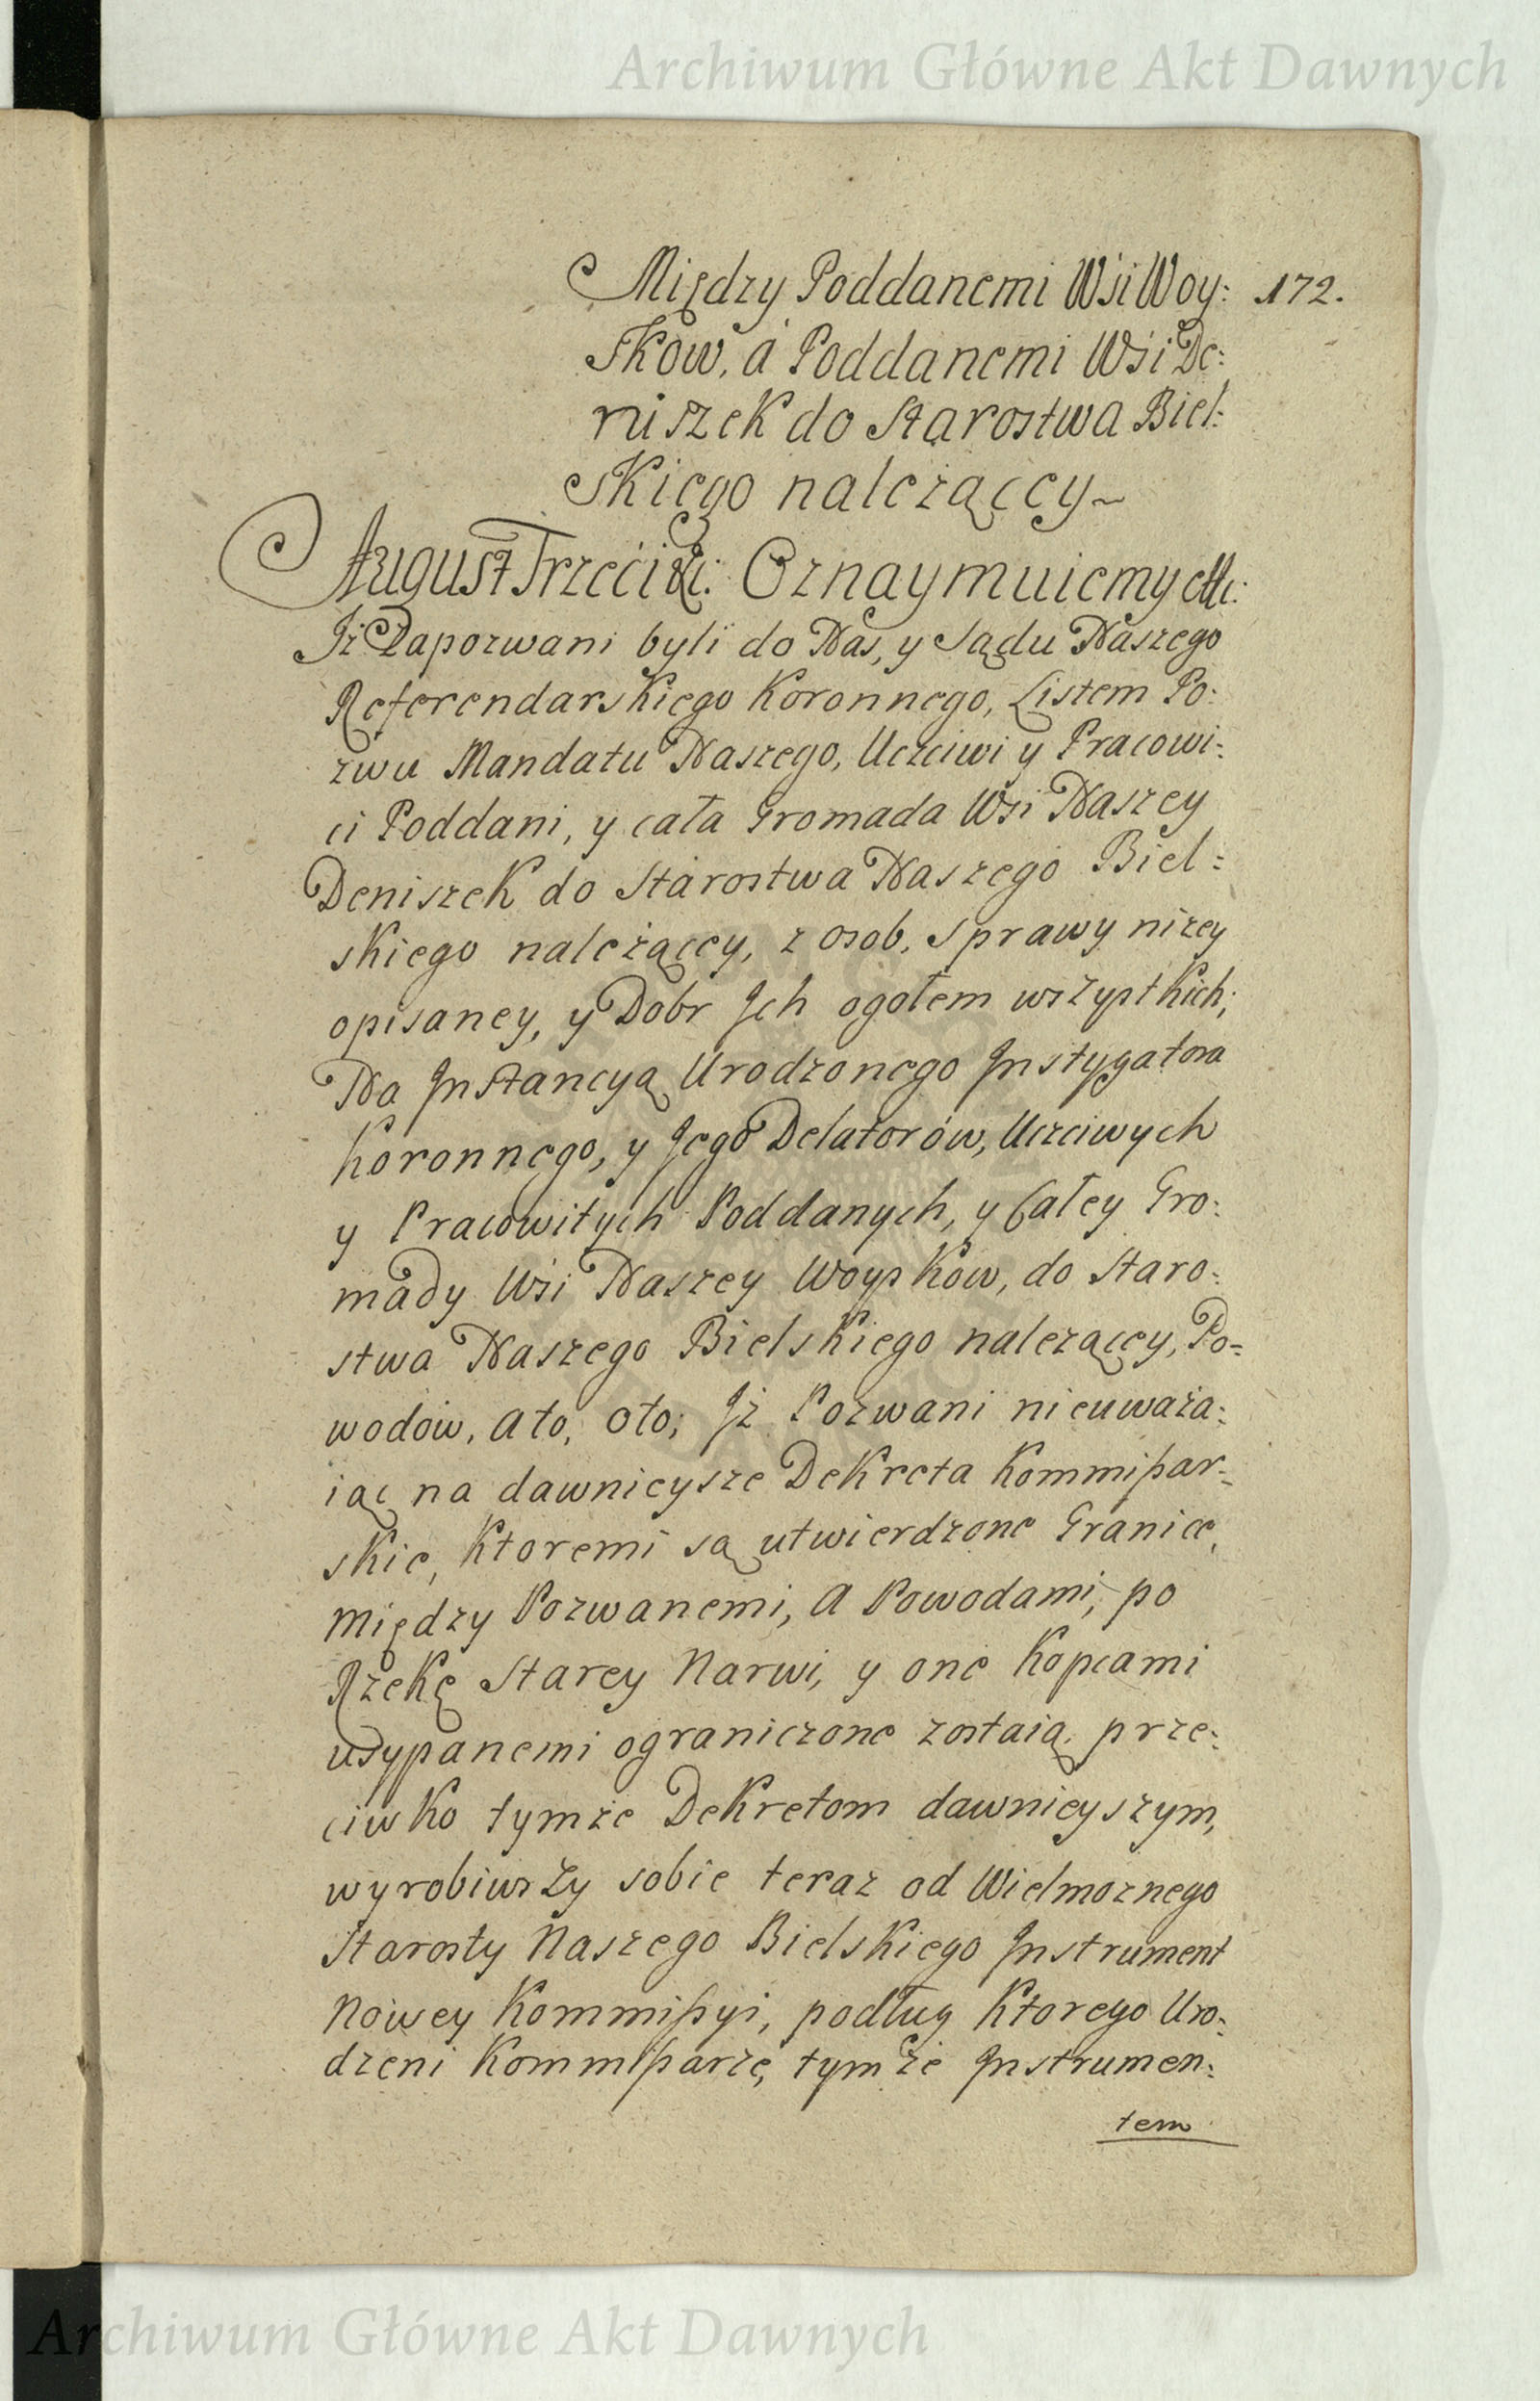 Archiwum Główne Akt Dawnych
Między Poddanemi Wsi Woy: 172.
skow, á Poddanemi Wśi De:
niszek do Starostwa Biel:
skiego nalezącey~
August Trzeci &c: Oznaymuiemy etc:
Iż Zapozwani byli do Nas, y Sądu Naszego
Referendarskiego Koronnego, Listem Po:
zwu Mandatu Naszego, Uczciwi y Pracowi:
ci Poddani, y cała Gromada Wsi Naszey
Deniszek do Starostwa Naszego Biel:
skiego nalezącey, z osob, sprawy nizey
opisaney, y Dobr Ich ogołem wszystkich;
Na Instancyą Urodzonego Instygatora
Koronnego, y Jego Delatorów, Uczciwych
y Pracowitych Poddanych, y Całey Gro:
mady Wsi Naszey Woyskow, do Staro:
stwa Naszego Bielskiego nalezącey, Po=
wodów, ato, oto; Iż Pozwani nieuwaza:
iąc na dawnieysze Dekreta Kommißar=
skie, Ktoremi są utwierdzone Granice,
między Pozwanemi, a Powodami, po
Rzekę Starey Narwi, y one Kopcami
usypanemi ograniczone zostaią, prze:
ciwko tymże Dekretom dawnieyszym,
wyrobiwszy sobie teraz od Wielmoznego
Starosty Naszego Bielskiego Instrument
Nowey Kommißyi, podług Ktorego Uro:
dzeni Kommißarze, tymże Instrumen:
tem
Archiwum Główne Akt Dawnych